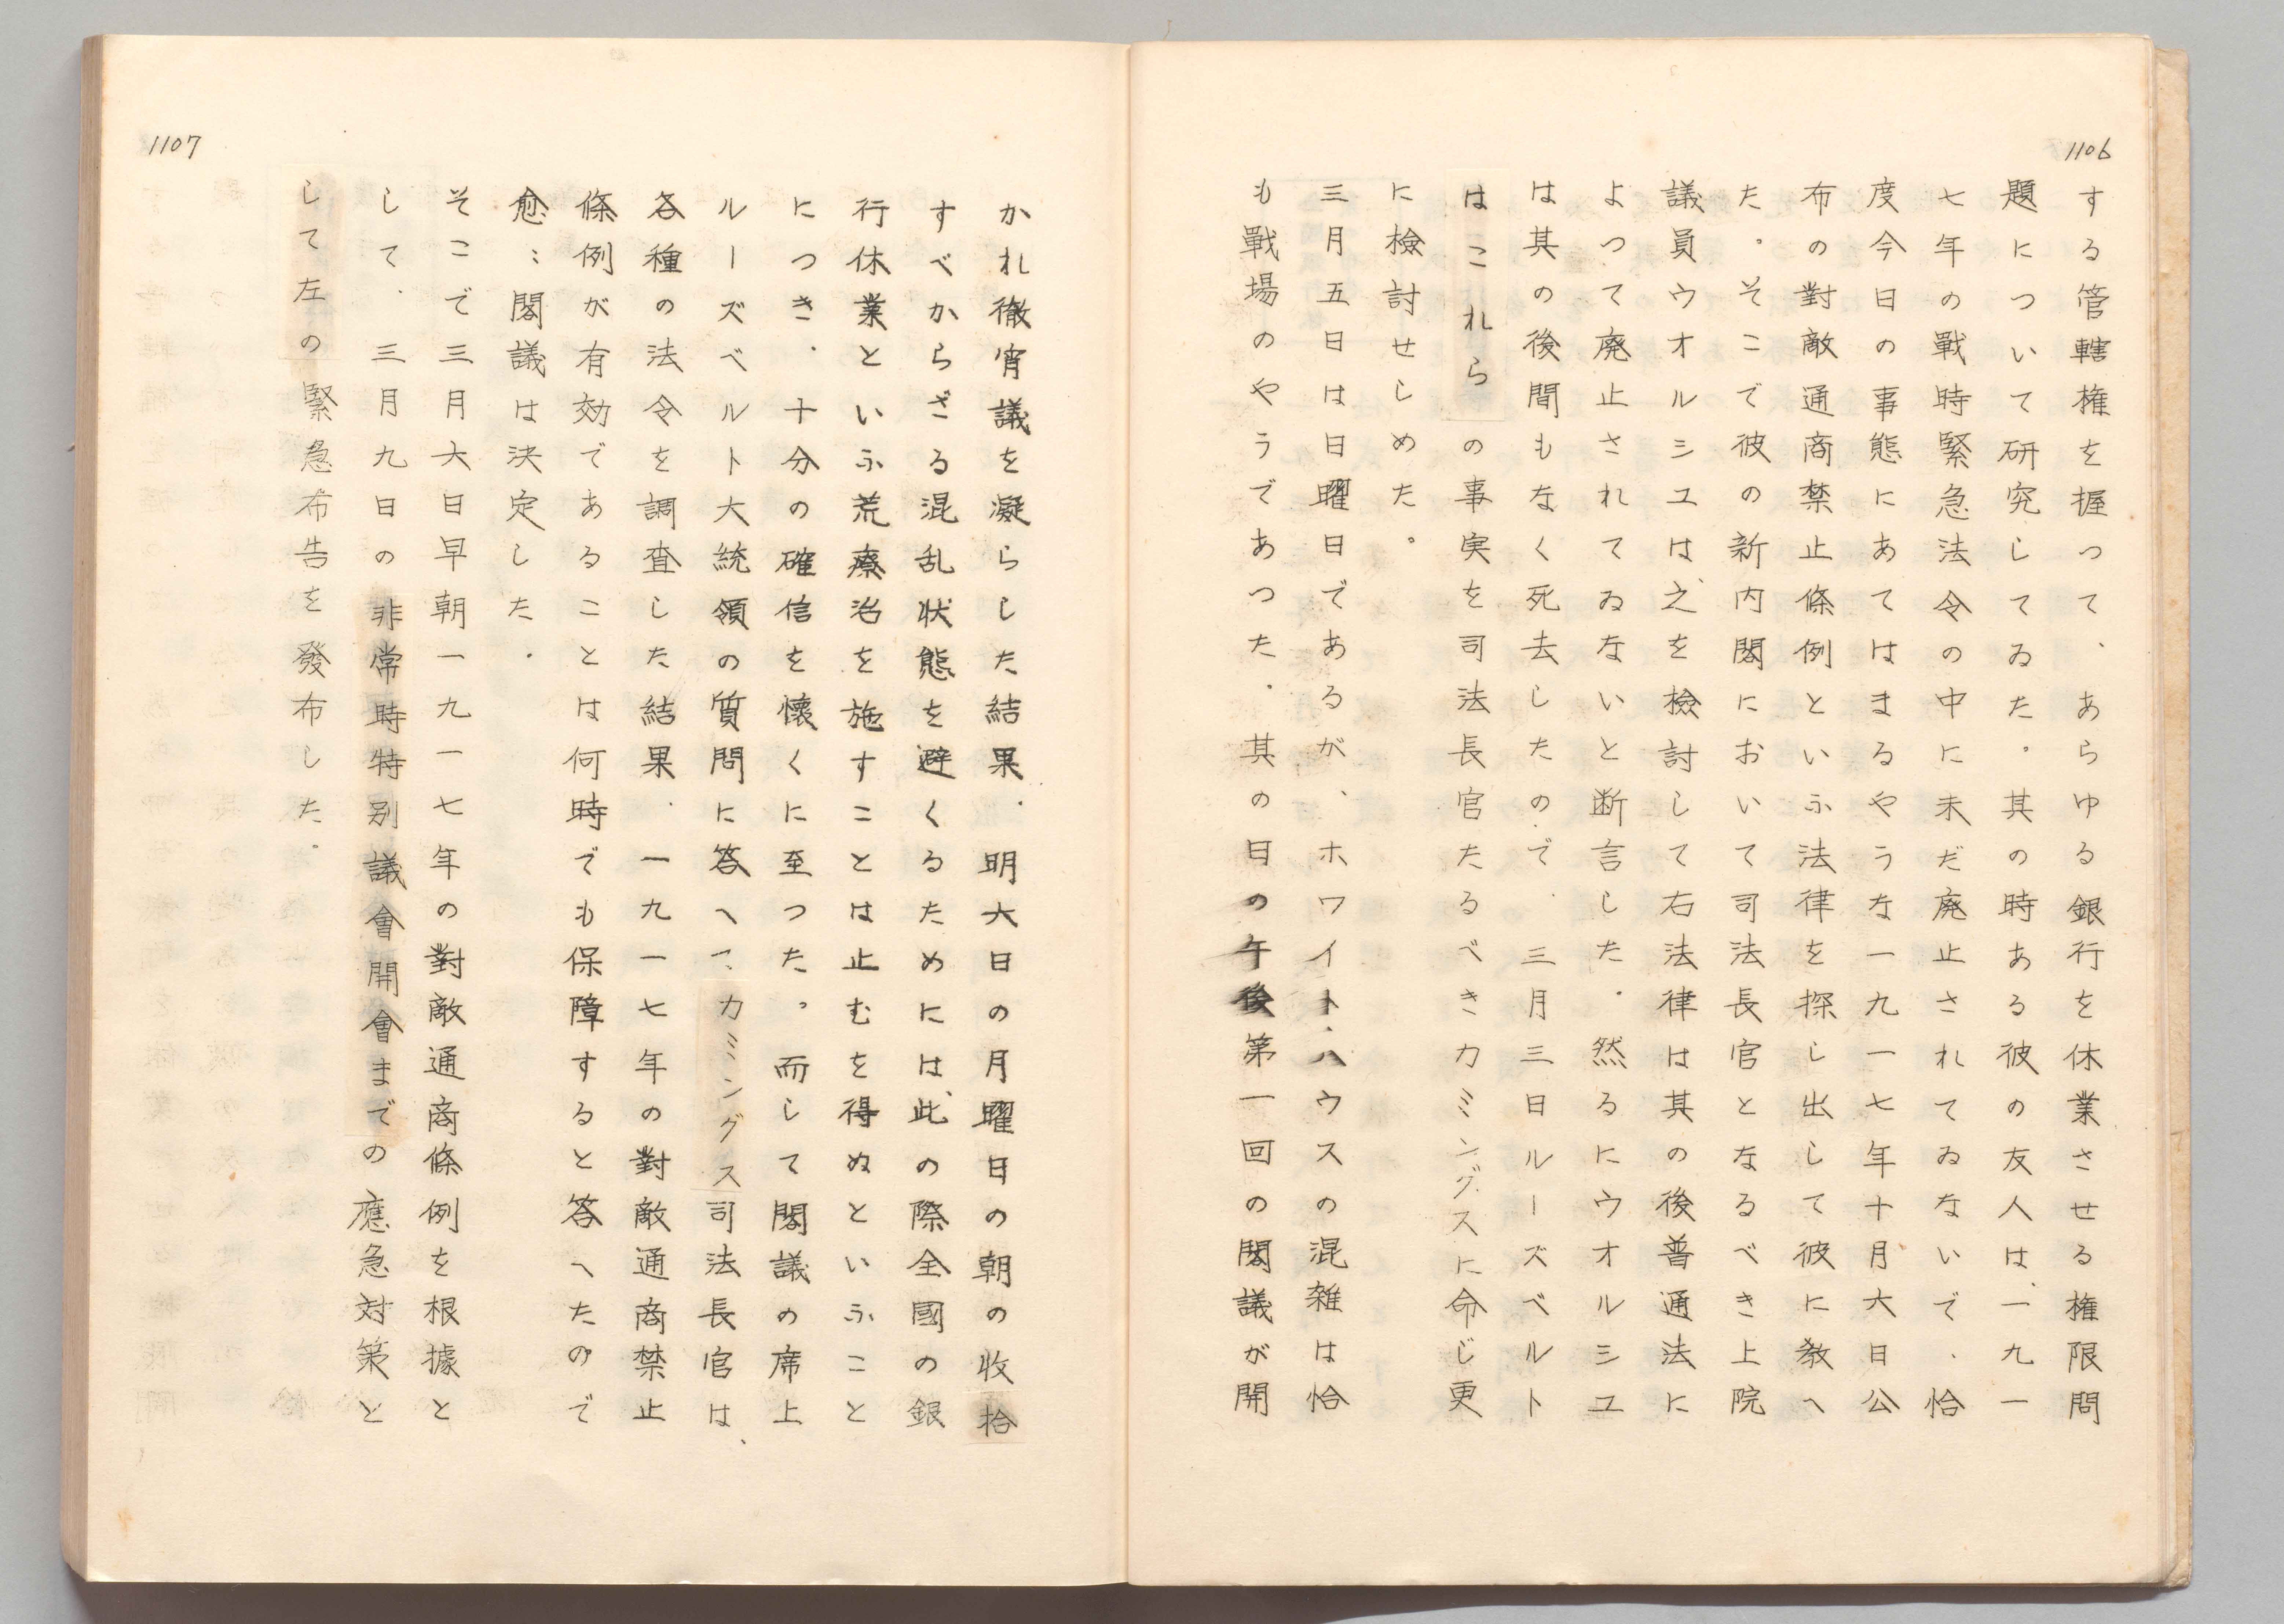 1106
する管轄権を握つて、あらゆる銀行を休業させる権限問
題について研究してゐた。其の時ある彼の友人は、一九一
七年の戰時緊急法令の中に未だ廃止されてゐないで、恰
度今日の事態にあてはまるやうな一九一七年十月六日公
布の對敵通商禁止條例といふ法律を探し出して彼に教へ
た。そこで彼の新内閣において司法長官となるべき上院
議員ウオルシユは、之を檢討して右法律は其の後普通法に
よつて廃止されてゐないと断言した。然るにウオルシユ
は其の後間もなく死去したので、三月三日ルーズベルト
はこれらの事実を司法長官たるべきカミングスに命じ更
に檢討せしめた。
三月五日は日曜日であるが、ホワイト・ハウスの混雑は恰
も戰場のやうであつた。其の日の午後第一回の閣議が開
1107
かれ徹宵議を凝らした結果、明六日の月曜日の朝の收拾
すべからざる混乱状態を避くるためには、此の際全國の銀
行休業といふ荒療治を施すことは止むを得ぬといふこと
につき、十分の確信を懐くに至つた。而して閣議の席上
ルーズベルト大統領の質問に答へて、カミングス司法長官は、
各種の法令を調査した結果、一九一七年の對敵通商禁止
條例が有効であることは何時でも保障すると答へたので
愈〻閣議は決定した。
そこで三月六日早朝一九一七年の對敵通商條例を根據と
して、三月九日の非常時特別議會開會までの應急対策と
して左の緊急布告を發布した。